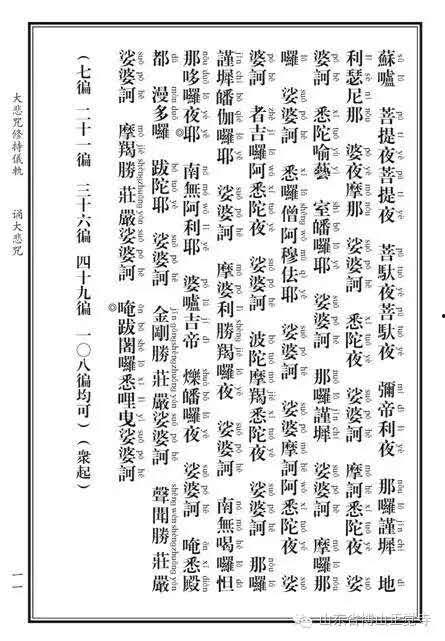 蘇嚧 菩提夜菩提夜 菩馱夜菩馱夜 彌帝利夜 那囉謹墀 地
利瑟尼那 婆夜摩那 娑婆訶 悉陀夜 娑婆訶 摩訶悉陀夜 娑
婆訶 悉陀喻藝 室皤囉耶 娑婆訶 那囉謹墀 娑婆訶 摩囉那
囉 娑婆訶 悉囉僧阿穆佉耶 娑婆訶 娑婆摩訶阿悉陀夜 娑
婆訶 者吉囉阿悉陀夜 娑婆訶 波陀摩羯悉陀夜 娑婆訶 那囉
謹墀皤伽囉耶 娑婆訶 摩婆利勝羯囉夜 娑婆訶 南無喝囉怛
那哆囉夜耶◎ 南無阿利耶 婆嚧吉帝 爍皤囉夜 娑婆訶 唵悉殿
都 漫多囉 跋陀耶 娑婆訶 金剛勝莊嚴娑婆訶 聲聞勝莊嚴
娑婆訶 摩羯勝莊嚴娑婆訶◎ 唵跋闍囉悉哩曳娑婆訶
（七徧 二十一徧 三十六徧 四十九徧 一〇八徧均可）（衆起）
大悲咒修持儀軌 誦大悲咒
一一
山东省博山正觉寺